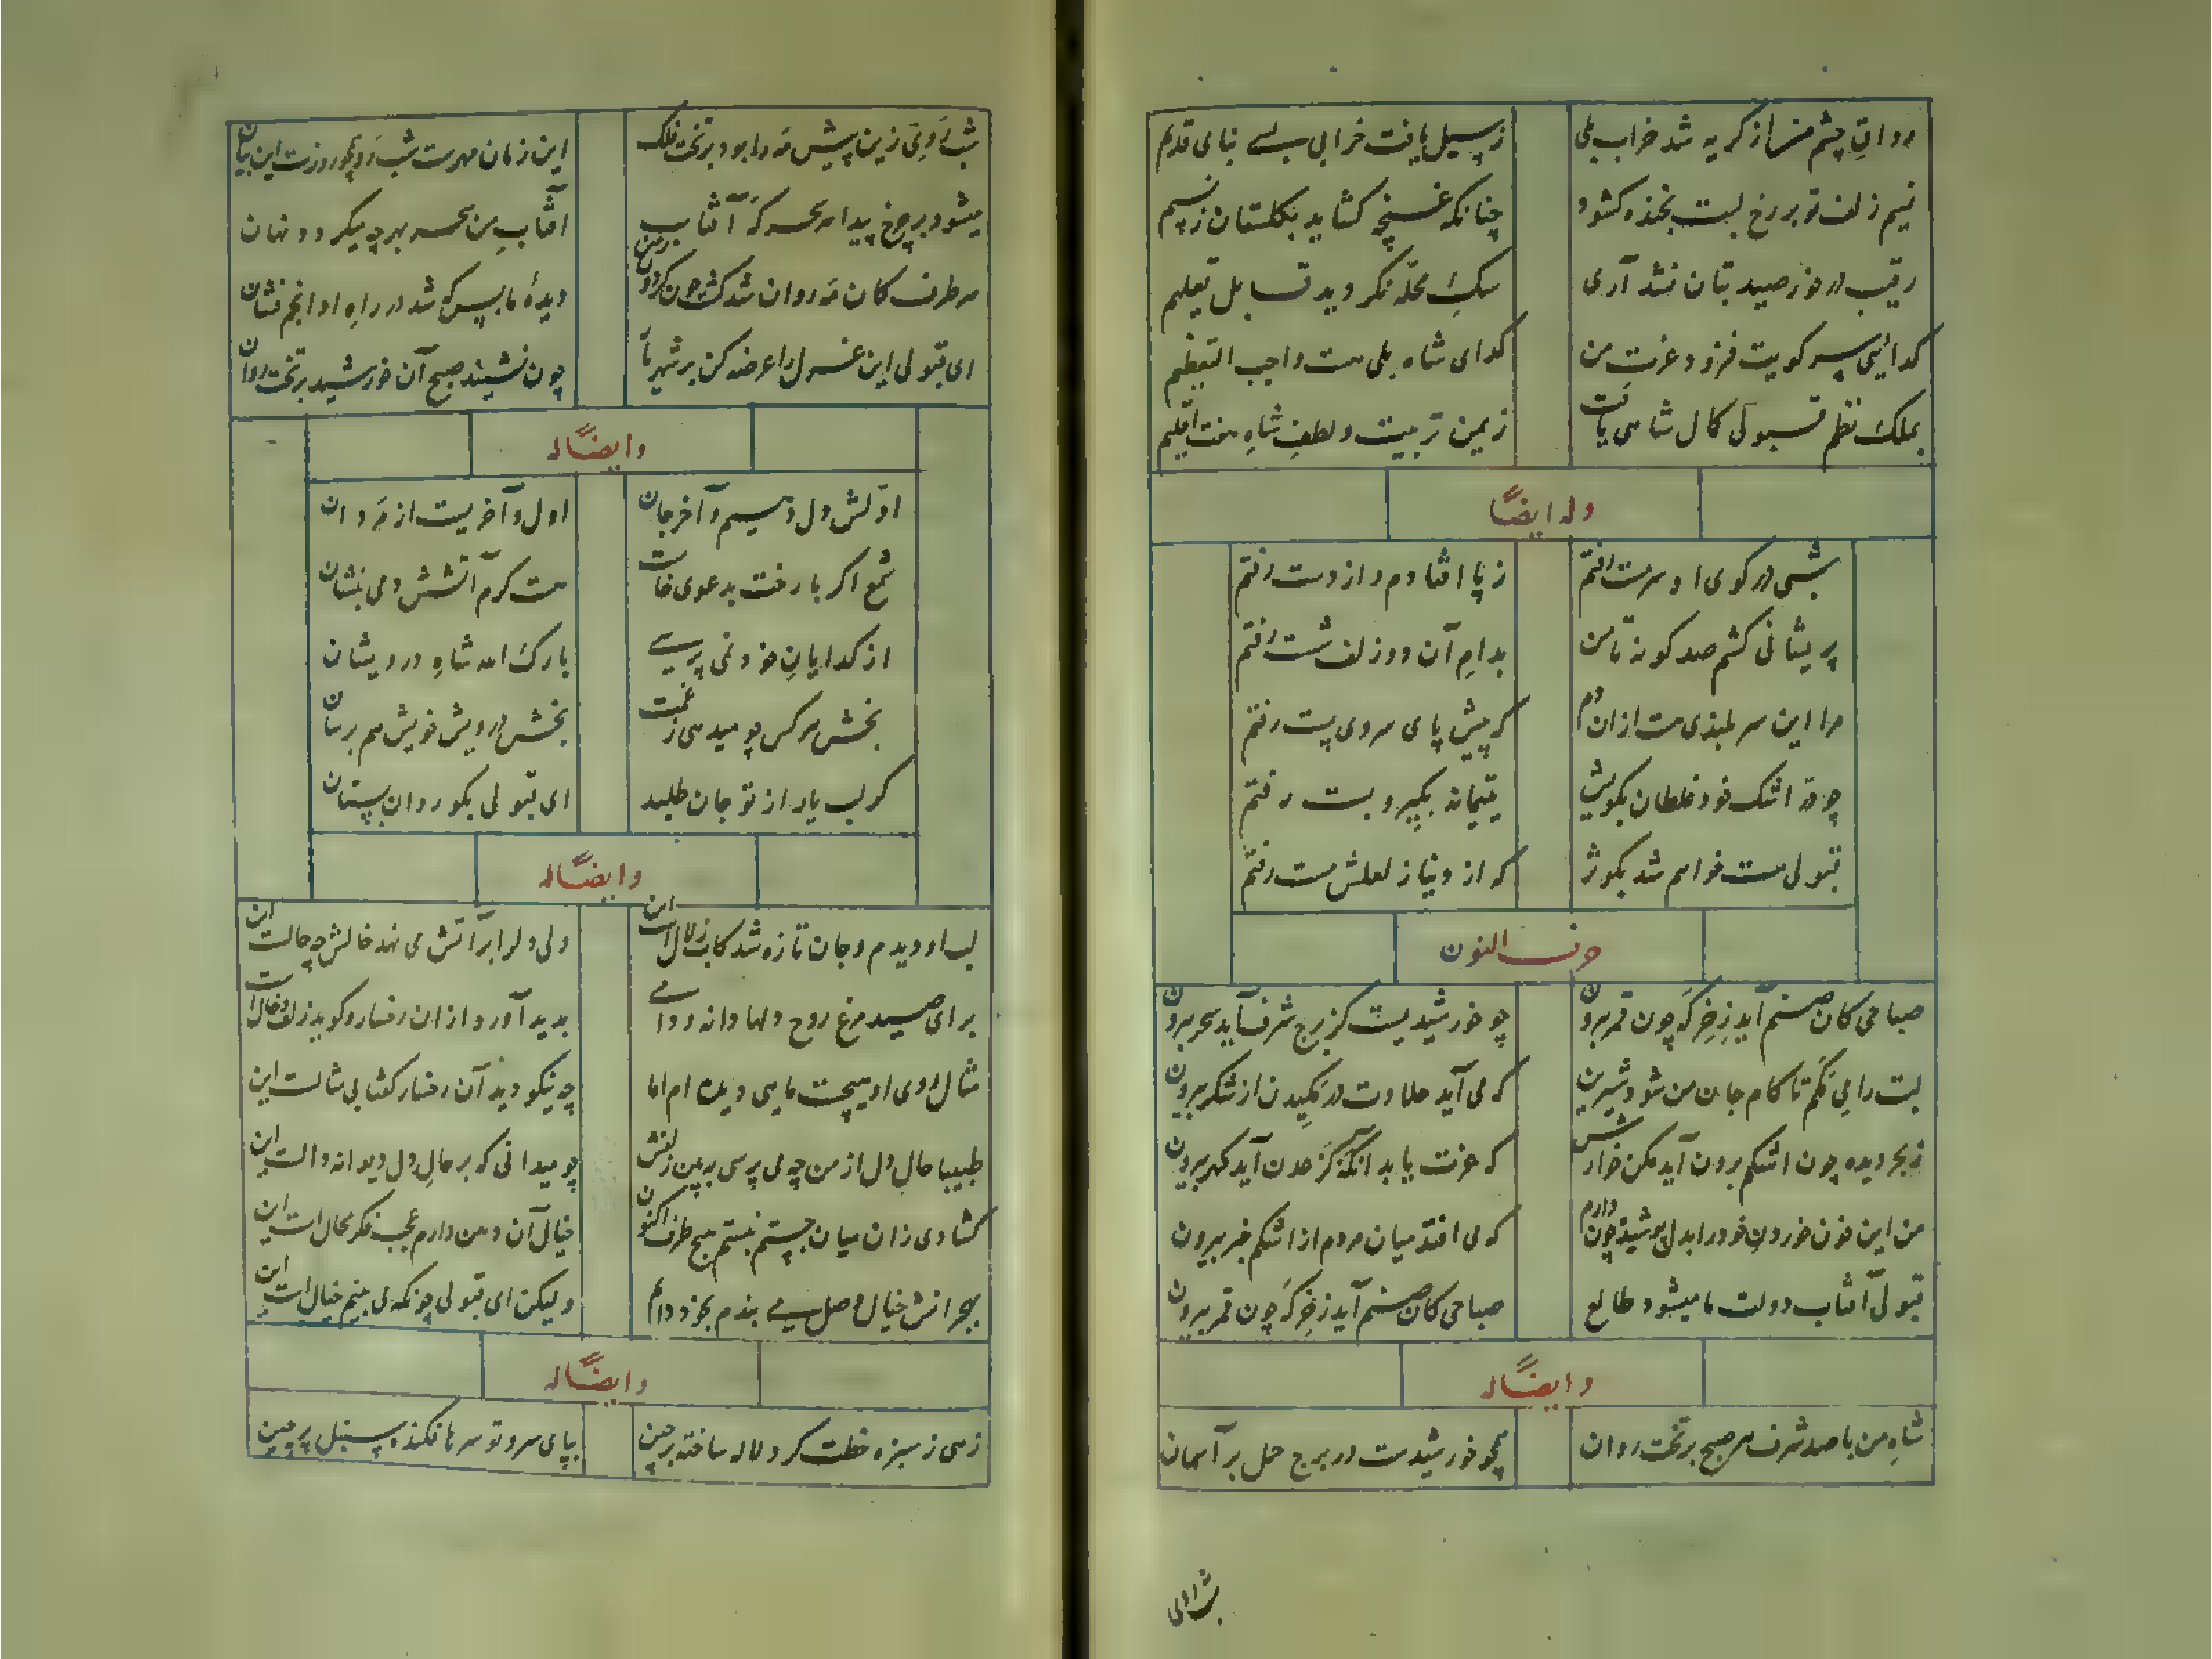 رواق چشم من از گریه شد خراب بلی
ز سیل یافت خرابی بسی بنای قدیم
نسیم زلف تو بر رخ لبت بخنده کشود
چنانکه غنچه کشاید بگلستان ز نسیم
رقیب در خور صید بتان نشد آری
سگ محله نگردید قابل تعلیم
گدائی سر کویت فزود عزت من
گدای شاه بلی هست واجب التعظیم
بملک نظم قبولی کمال شاهی یافت
ز یمن تربیت و لطف شاه هفت اقلیم
وله ایضاً
شبی در کوی او سرمست رفتم
ز پا افتادم و از دست رفتم
پریشانی کشم صد گونه تا من
بدام آن دو زلف شست رفتم
مرا این سربلندی هست ازان دم
که پیش پای سروی پست رفتم
چو در اشک خود غلطان بکویش
یتیمانه بگیر و بست رفتم
قبولی مست خواهم شد بگور
که از دنیا ز لعلش مست رفتم
حرف النون
صباحی کان صنم آید ز خرگه چون قمر بیرون
چو خورشیدیست کز برج شرف آید سحر بیرون
لبت را می مکم تا کام جان من شود شیرین
که می آید حلاوت در مکیدن از شکر بیرون
ز بحر دیده چون اشکم برون آید مکن خوارش
که عزت یابد آنگه کز عدن آید گهر بیرون
من این خون خوردن خود را بدل پوشیده چون دارم
که می افتد میان مردم از اشکم خبر بیرون
قبولی آفتاب دولت ما میشود طالع
صباحی کان صنم آید ز خرگه چون قمر بیرون
وایضاً له
شاه من با صد شرف هر صبح بر تخت روان
همچو خورشیدست در برج حمل بر آسمان
شب روی
شب روی زین پیش مه را بود بر تخت فلک
این زمان مهرست شب رو همچو روزست این بیان
میشود بر چرخ پیدا هر سحرگه آفتاب
آفتاب من سحر بهر چه میگردد نهان
هر طرف کان مه روان شد کش چون گردون
دیدهٔ ما بین که شد در راه او انجم فشان
ای قبولی این غزل را عرضه کن بر شهریار
چون نشیند صبح آن خورشید بر تخت روان
وایضاً له
اولش دل دهیم و آخر جان
اول و آخریست از مردان
شمع اگر با رخت بدعوی خاست
هست گرم آتشش دمی بنشان
از گدایان خود نمی پرسی
بارک الله شاه درویشان
بخش هر کس چو میدهی ز غمت
بخش درویش خویش هم برسان
گر لب یار از تو جان طلبد
ای قبولی بگو روان بستان
وایضاً له
لب او دیدم و جان تازه شد کاب زلال است این
ولی دلرا بر آتش می نهد خالش چه حالست این
برای صید مرغ روح دلها دانه و دامی
پدید آورد ازان رخسار و گوید زلف و خال است این
مثال روی او هیچت ماهی دیده ام اما
چو نیکو دید آن رخسار گفتا بی مثالست این
طبیبا حال دل از من چه می پرسی ببین زلفش
چو میدانی که بر حال دل دیوانه دالست این
گشادی زان میان جستم نبستم هیچ طرف اکنون
خیال آن دهن دارم عجب فکر محال است این
بهجرانش خیال وصل می بندم بخود دایم
ولیکن ای قبولی چونکه می بینم خیال است این
وایضاً له
زهی ز سبزه خطت گرد لاله ساخته پرچین
بپای سرو تو سرها فکنده سنبل پرچین